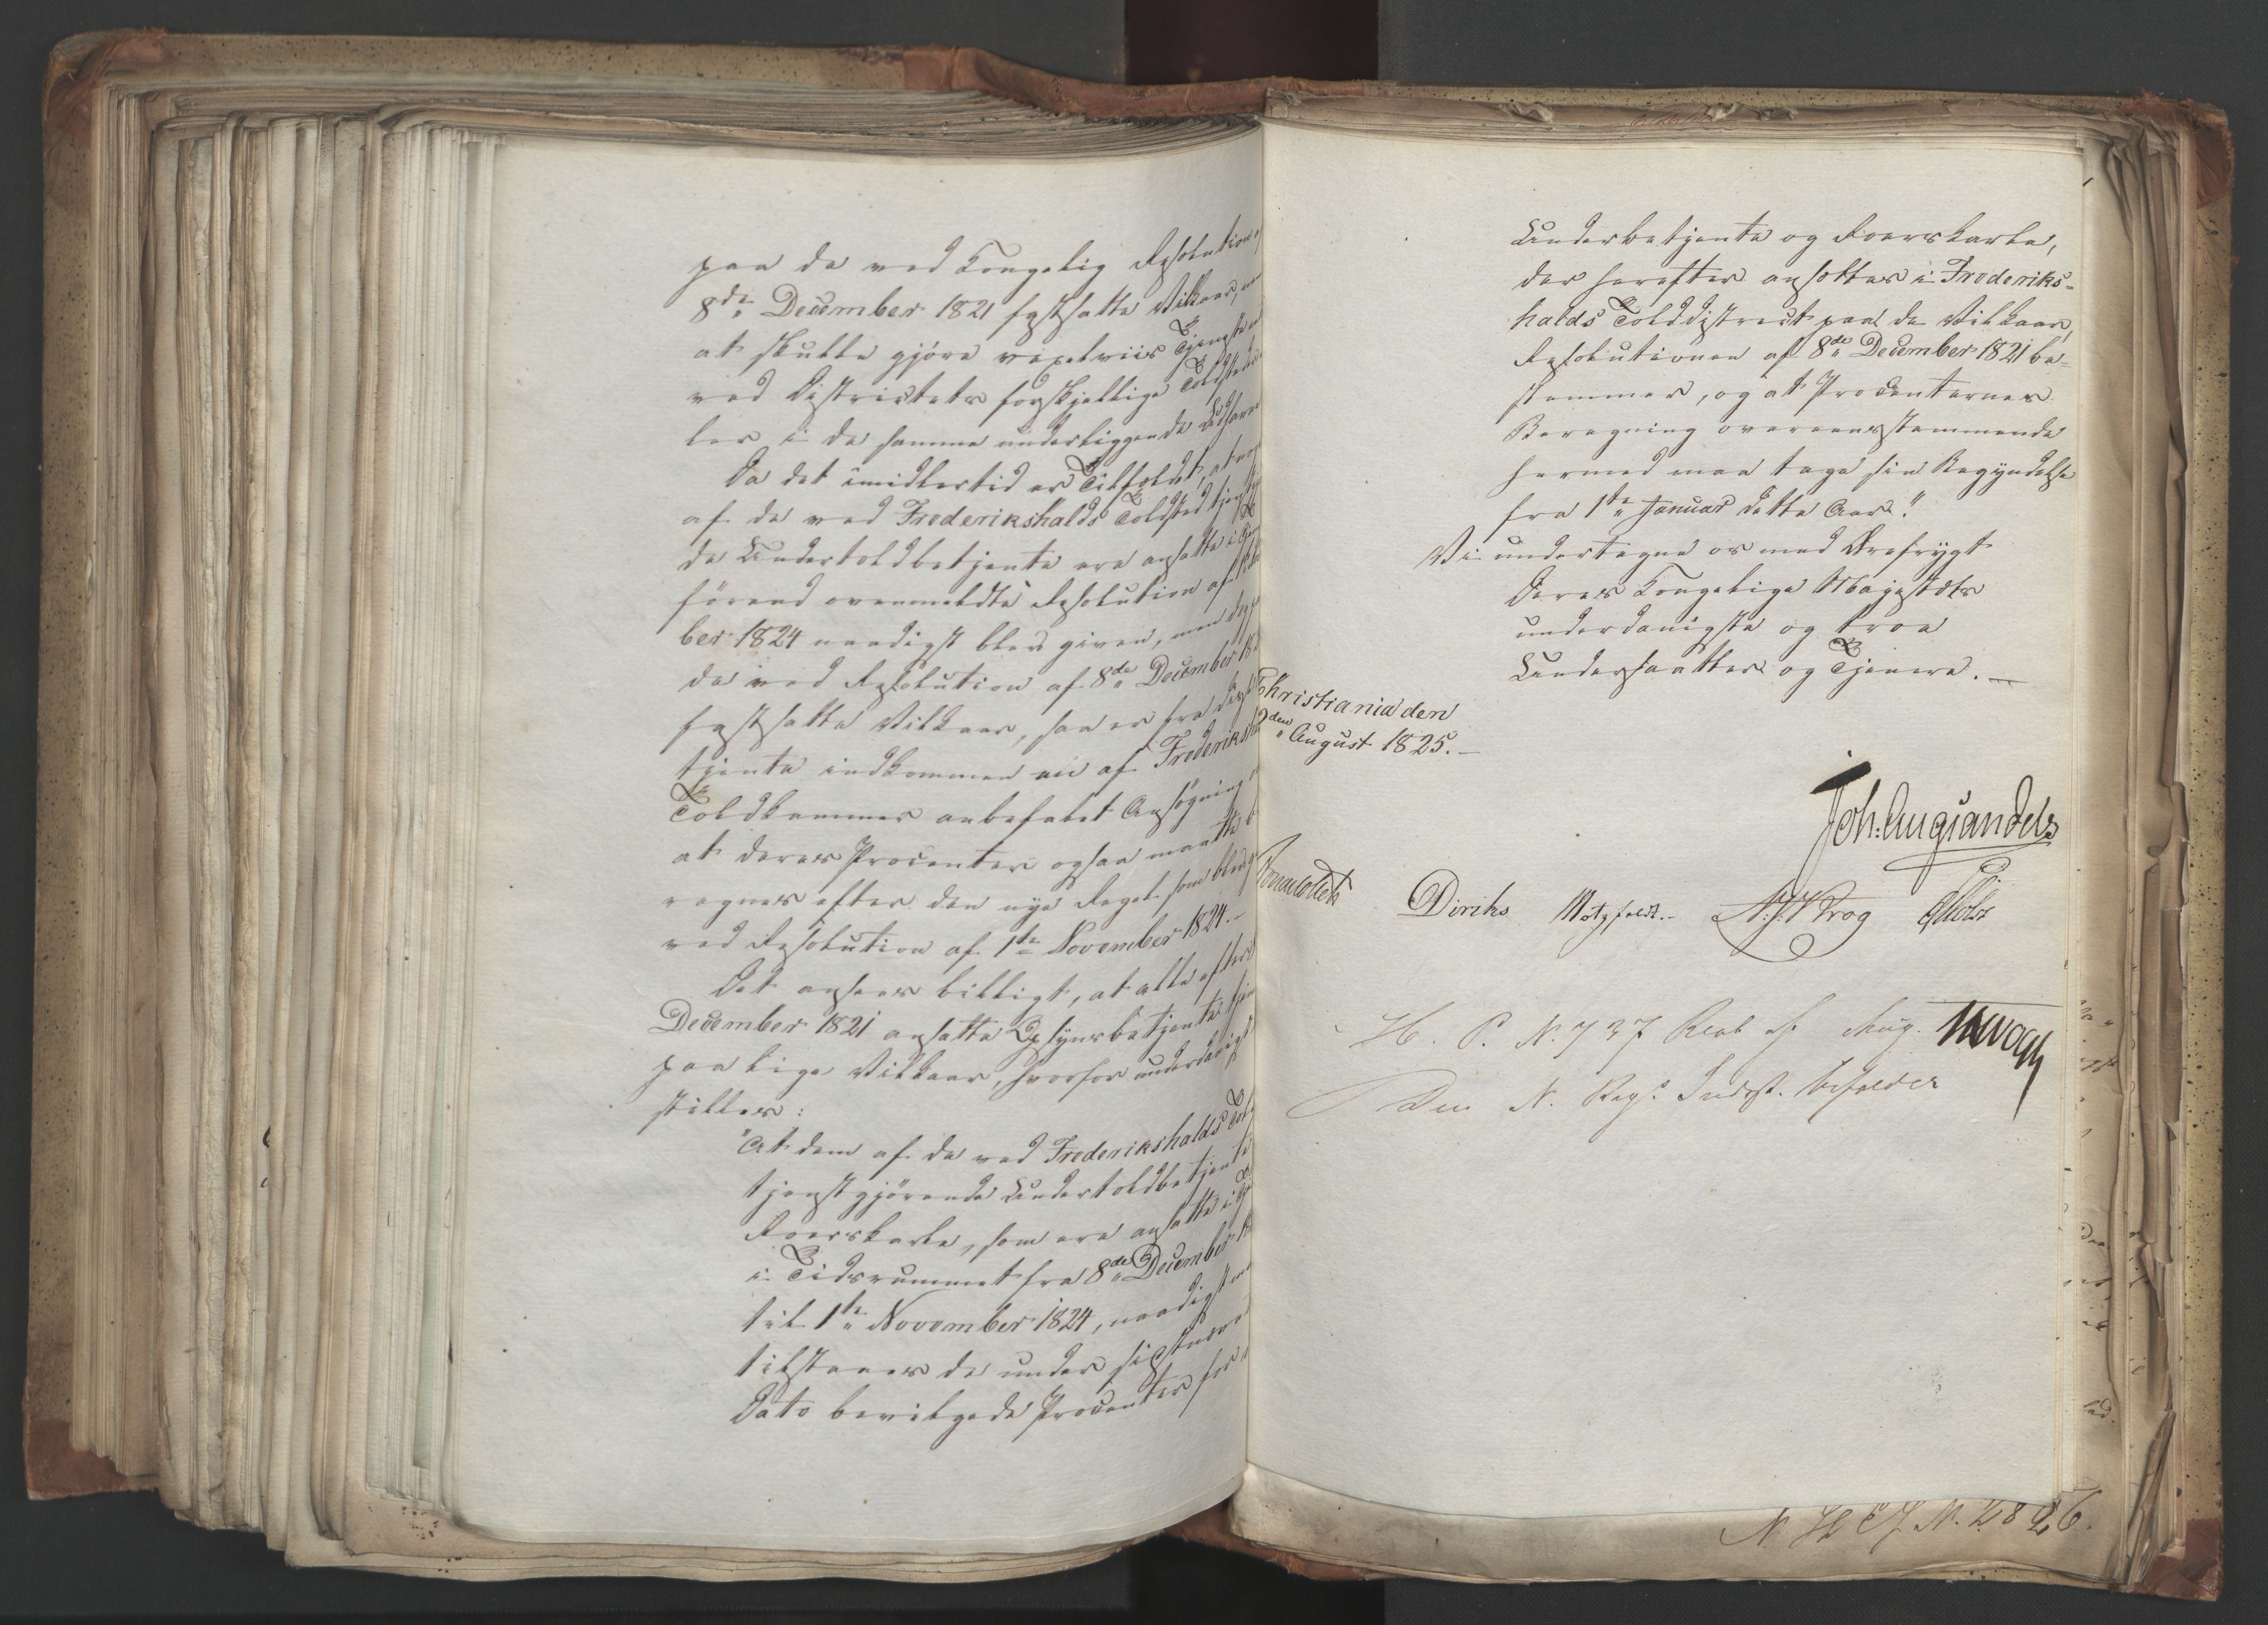 paa de ved Kongelig Resolution
8de December 1821 fastsatte Vilkaar,
at skulle gjöre vexelviis Tjeneste
ved Districtets forskjellige Toldsteder
ler i de samme underliggende Udhavne
Da det imidlertid er Tilfældet, at
af de ved Frederikshalds Toldsted
de Undertoldbetjente ere ansatte i
förend ovenmeldte Resolution af
ber 1824 naadigst blev given, men
de ved Resolution af 8de December
fastsatte Vilkaar, saa er fra
tjente indkommen en af Frederikshalds
Toldkammer anbefalet Ansögning
at deres Procenter ogsaa maatte
regnes efter den nye Regel som
ved Resolution af 1te November 1824.-
Det ansees billigt, at alle efter
December 1821 ansatte Opsynsbetjente
paa lige Vilkaar, hvorfor underdanigst
stilles:
"At dem af de ved Frederikshalds
tjenstgjörende Undertoldbetjente
Roerskarle, som ere ansatte i
i Tidsrummet fra 8de December
til 1te November 1824, naadigst
tilstaaes de under sidstnævnte
Dato bevilgede Procenter for
Underbetjente og Roerskarle,
der herefter ansættes i Frederiks-
halds Tolddistrict paa de Vilkaar,
Resolutionen af 8de December 1821 be-
stemmer, og at Procenternes
Beregning overeensstemmende
hermed maa tage sin Begyndelse
fra 1te Januar dette Aar."
Vi undertegne os med Ærefrygt
Deres Kongelige Majestæts
underdanigste og troe
Undersaatter og Tjenere.-
Christiania den
den August 1825.-
Joh: Aug: Sandels
Diriks Motzfeldt.- Krog
H. P. N. 737 Aug.
Den N. Reg.s Indst. bifaldes
N. 2826.